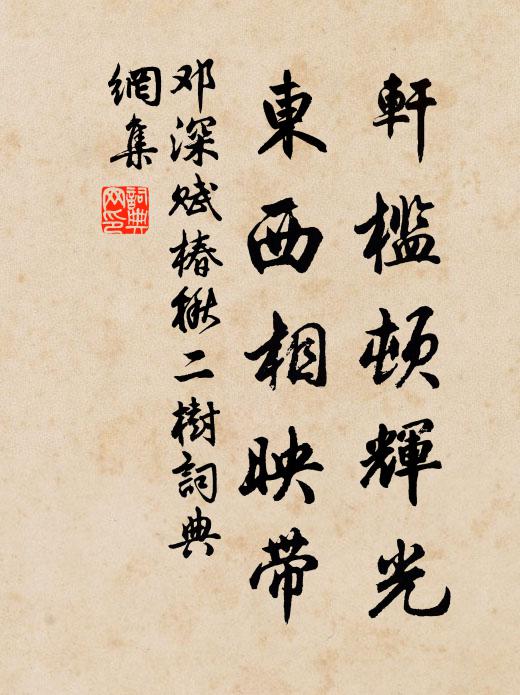 軒檻頓輝光
東西相映带
邓深赋椿楸二樹詞典
網集
詞典网印